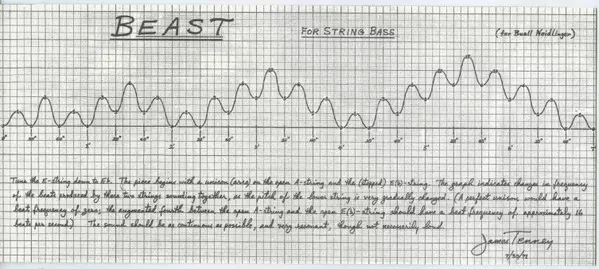 BEAST
FOR STRING BASS
(for Buell Neidlinger)
Tune the E-string down to Eb. The piece begins with a unison (arco) on the open A-string and the (stopped) E(b)-string. The graph indicates changes in frequency
of the beats produced by these two strings sounding together, as the pitch of the lower string is very gradually changed. (A perfect unison would have a
beat frequency of zero; the augmented fourth between the open A-string and the open E(b)-string should have a beat frequency of approximately 16
beats per second.) The sound should be as continuous as possible, and very resonant, though not necessarily loud.
James Tenney